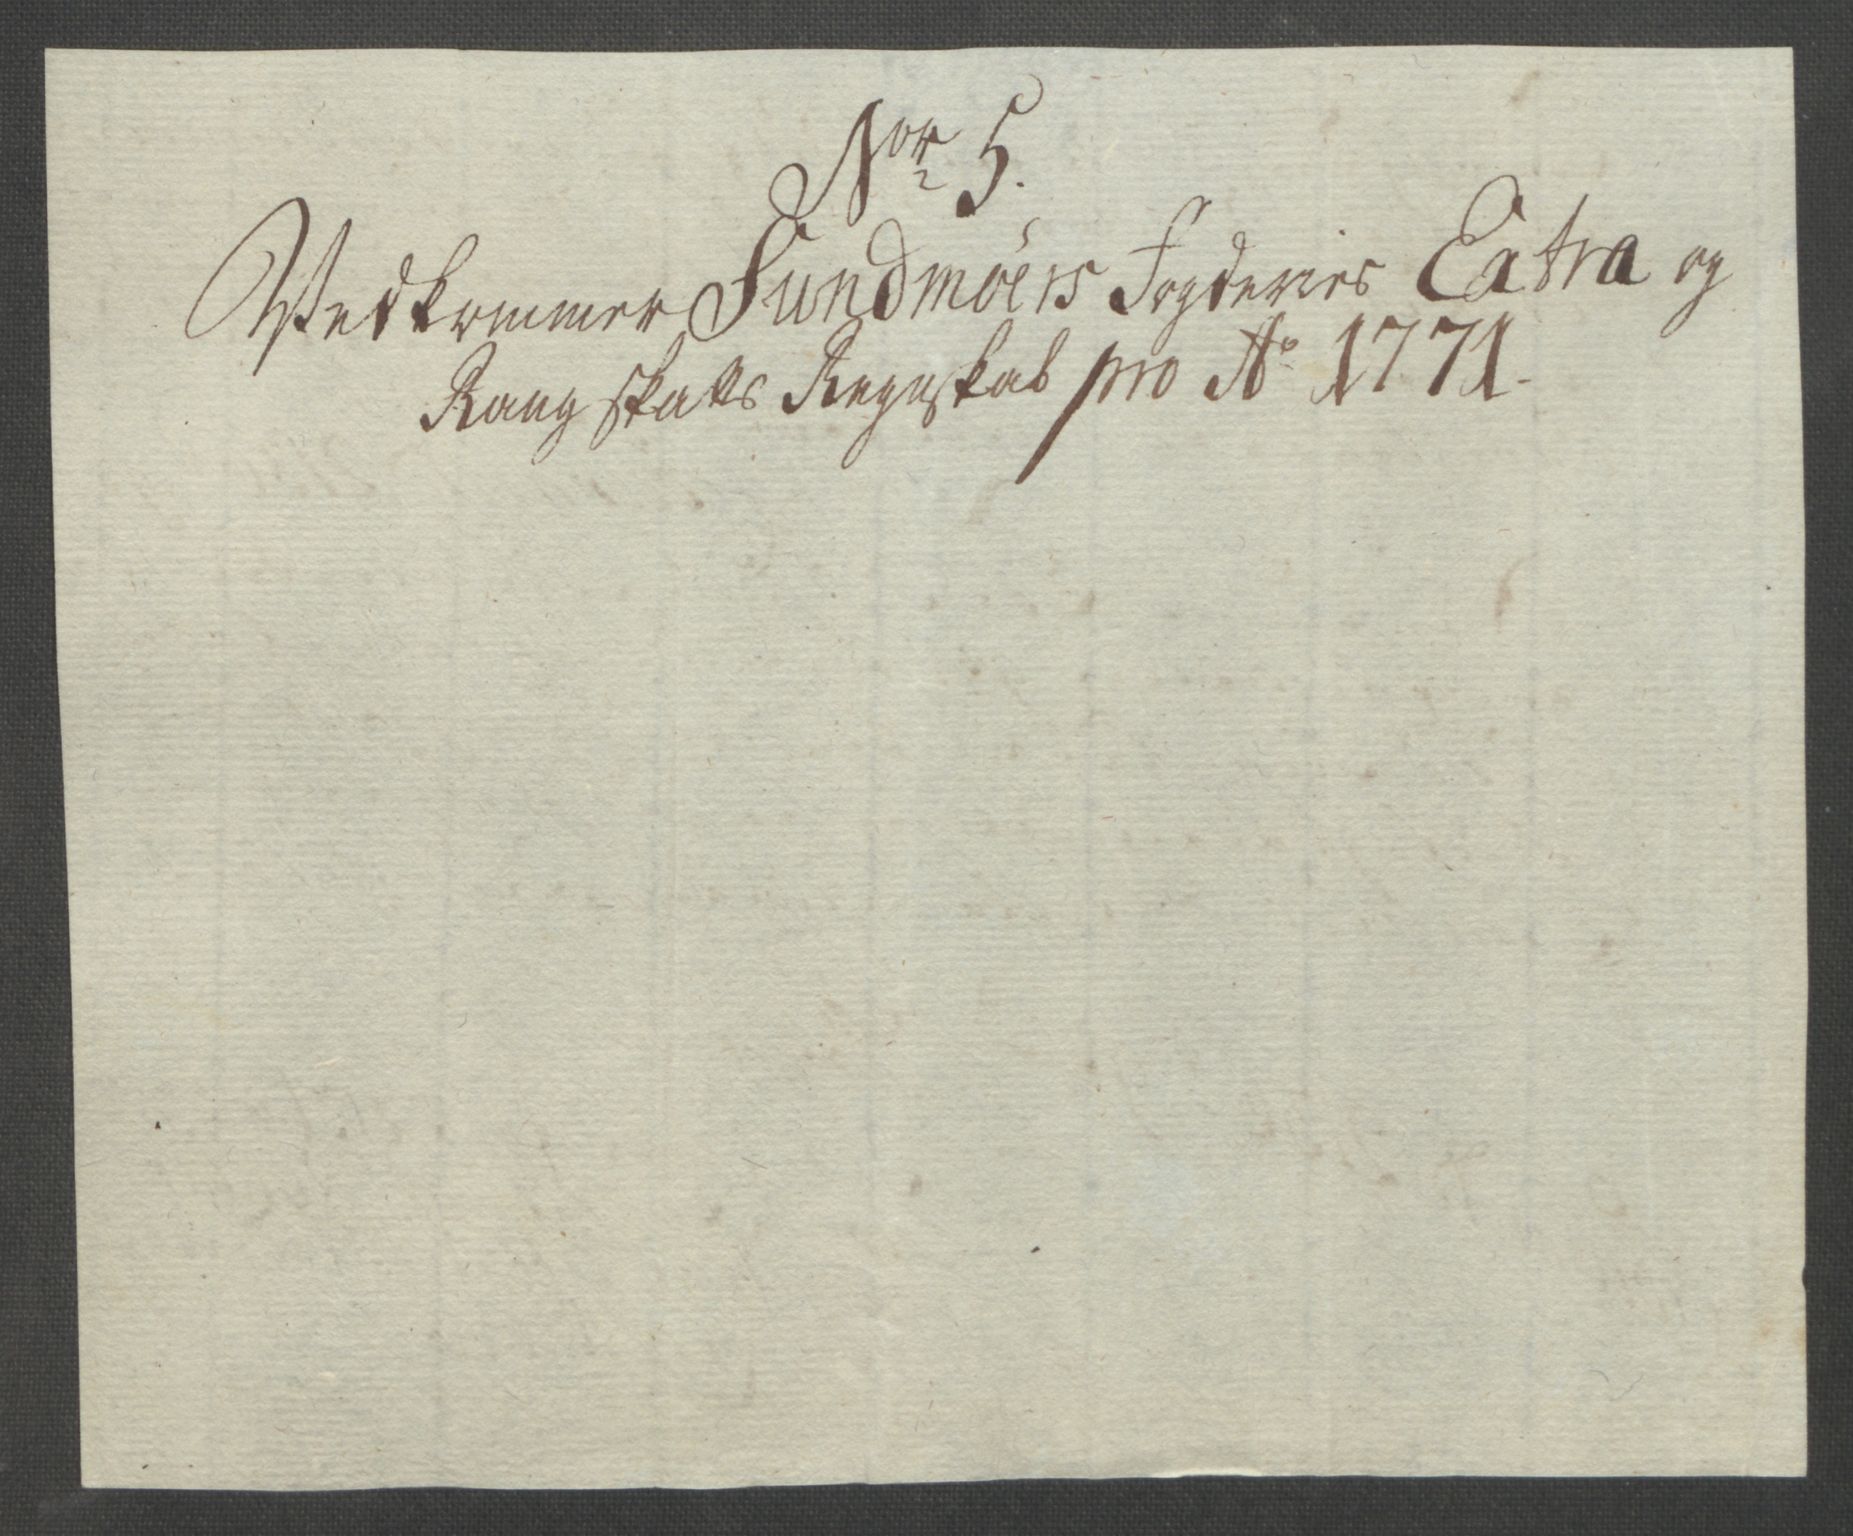 Nor 5.
Vedkommer Sundmöers Fogderies Extra og
Rang skatts Regnskab pro Ao 1771.